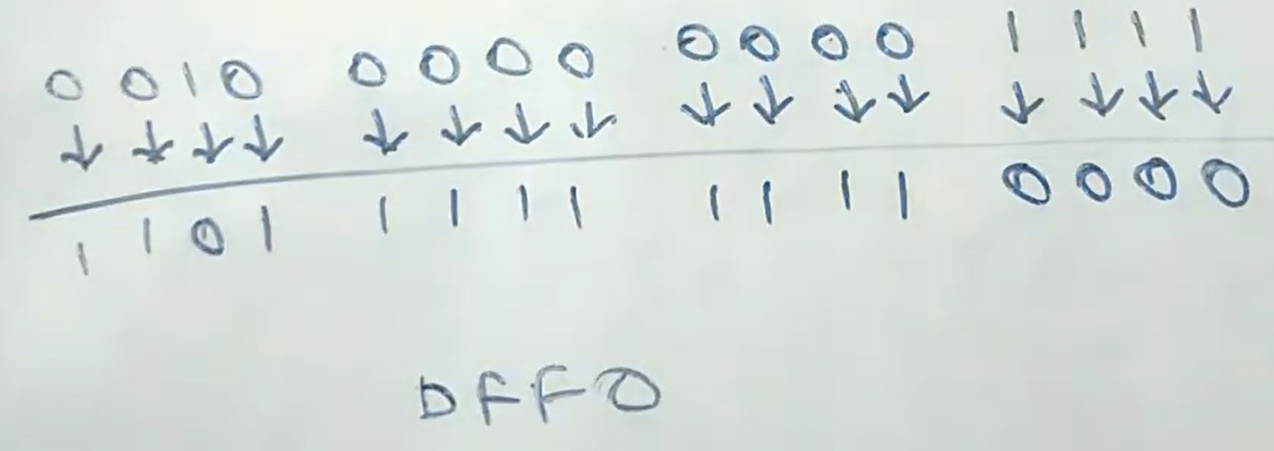 0 0 1 0 0 0 0 0 0 0 0 0 1 1 1 1
↓ ↓ ↓ ↓ ↓ ↓ ↓ ↓ ↓ ↓ ↓ ↓ ↓ ↓ ↓ ↓
1 1 0 1 1 1 1 1 1 1 1 1 0 0 0 0
D F F 0